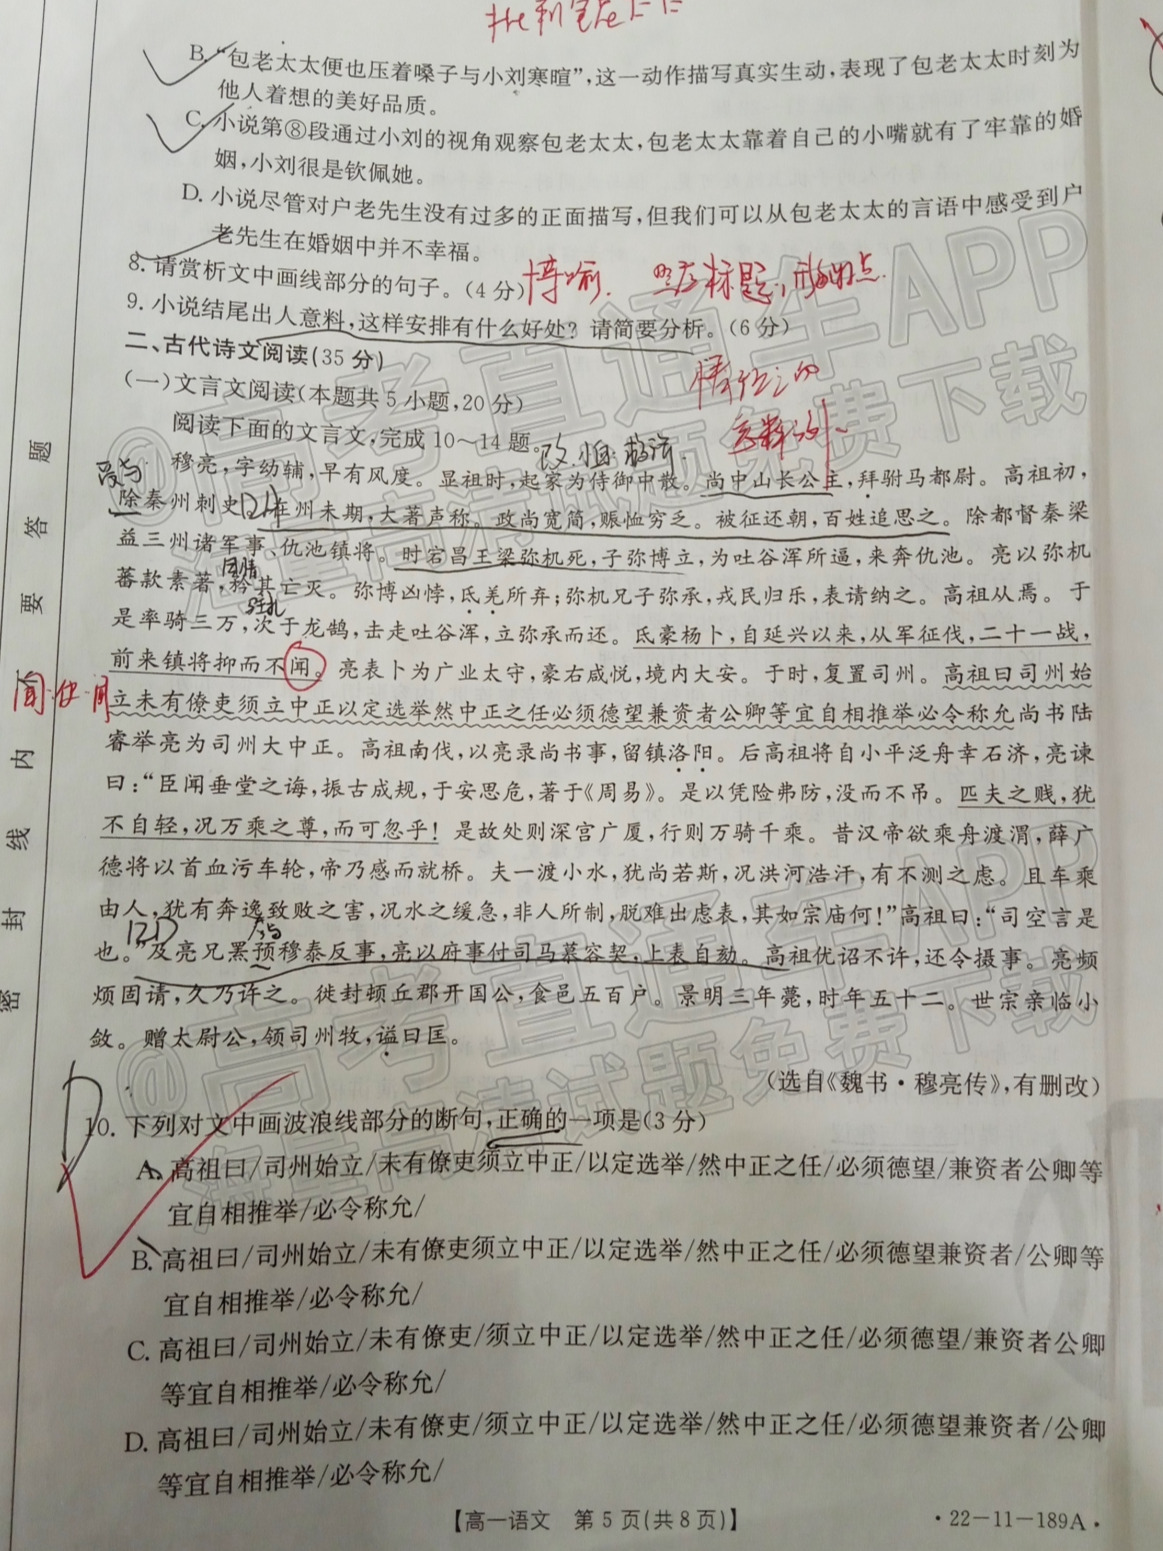 B. “包老太太便也压着嗓子与小刘寒暄”,这一动作描写真实生动,表现了包老太太时刻为
他人着想的美好品质。
C. 小说第⑧段通过小刘的视角观察包老太太,包老太太靠着自己的小嘴就有了牢靠的婚
姻,小刘很是钦佩她。
D. 小说尽管对户老先生没有过多的正面描写,但我们可以从包老太太的言语中感受到户
老先生在婚姻中并不幸福。
8. 请赏析文中画线部分的句子。(4分)
博喻.
9. 小说结尾出人意料,这样安排有什么好处? 请简要分析。(6分)
二、古代诗文阅读(35分)
(一)文言文阅读(本题共5小题,20分)
阅读下面的文言文,完成10~14题。
穆亮,字幼辅,早有风度。显祖时,起家为侍御中散。尚中山长公主,拜驸马都尉。高祖初,
除秦州刺史。在州未期,大著声称。政尚宽简,赈恤穷乏。被征还朝,百姓追思之。除都督秦梁
益三州诸军事、仇池镇将。时宕昌王梁弥机死,子弥博立,为吐谷浑所逼,来奔仇池。亮以弥机
蕃款素著,矜其亡灭。弥博凶悖,氐羌所弃;弥机兄子弥承,戎民归乐,表请纳之。高祖从焉。于
是率骑三万,次于龙鹄,击走吐谷浑,立弥承而还。氐豪杨卜,自延兴以来,从军征伐,二十一战,
前来镇将抑而不闻。亮表卜为广业太守,豪右咸悦,境内大安。于时,复置司州。高祖曰司州始
立未有僚吏须立中正以定选举然中正之任必须德望兼资者公卿等宜自相推举必令称允尚书陆
睿举亮为司州大中正。高祖南伐,以亮录尚书事,留镇洛阳。后高祖将自小平泛舟幸石济,亮谏
曰:“臣闻垂堂之诲,振古成规,于安思危,著于《周易》。是以凭险弗防,没而不吊。匹夫之贱,犹
不自轻,况万乘之尊,而可忽乎! 是故处则深宫广厦,行则万骑千乘。昔汉帝欲乘舟渡渭,薛广
德将以首血污车轮,帝乃感而就桥。夫一渡小水,犹尚若斯,况洪河浩汗,有不测之虑。且车乘
由人,犹有奔逸致败之害,况水之缓急,非人所制,脱难出虑表,其如宗庙何!”高祖曰:“司空言是
也。”及亮兄罴预穆泰反事,亮以府事付司马慕容契,上表自劾。高祖优诏不许,还令摄事。亮频
烦固请,久乃许之。徙封顿丘郡开国公,食邑五百户。景明三年薨,时年五十二。世宗亲临小
敛。赠太尉公,领司州牧,谥曰匡。
(选自《魏书·穆亮传》,有删改)
10. 下列对文中画波浪线部分的断句,正确的一项是(3分)
A. 高祖曰/司州始立/未有僚吏须立中正/以定选举/然中正之任/必须德望/兼资者公卿等
宜自相推举/必令称允/
B. 高祖曰/司州始立/未有僚吏须立中正/以定选举/然中正之任/必须德望兼资者/公卿等
宜自相推举/必令称允/
C. 高祖曰/司州始立/未有僚吏/须立中正/以定选举/然中正之任/必须德望/兼资者公卿
等宜自相推举/必令称允/
D. 高祖曰/司州始立/未有僚吏/须立中正/以定选举/然中正之任/必须德望兼资者/公卿
等宜自相推举/必令称允/
【高一语文 第5页(共8页)】
·22-11-189A·
密 封 线 内 不 要 答 题
@高考直通车APP
海量高清试题免费下载
@高考直通车APP
海量高清试题免费下载